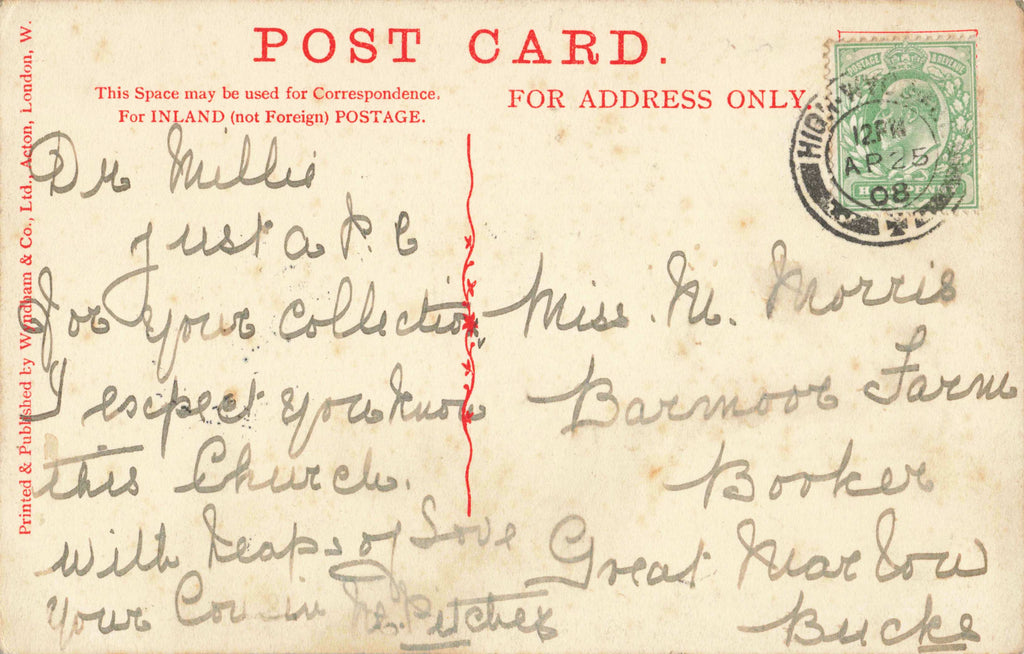 POST CARD.
This Space may be used for Correspondence.
For INLAND (not Foreign) POSTAGE.
FOR ADDRESS ONLY.
Printed & Published by Wyndham & Co., Ltd., Acton, London, W.
POSTAGE & REVENUE
HALFPENNY
HIGH WY
12PM
AP 25
08
Dr Millie
Just a P. C
For your collection
I expect you know
this Church.
With heaps of Love
your Cousin Pitcher
Miss. M. Morris
Barmoor Farm
Booker
Great Marlow
Bucks